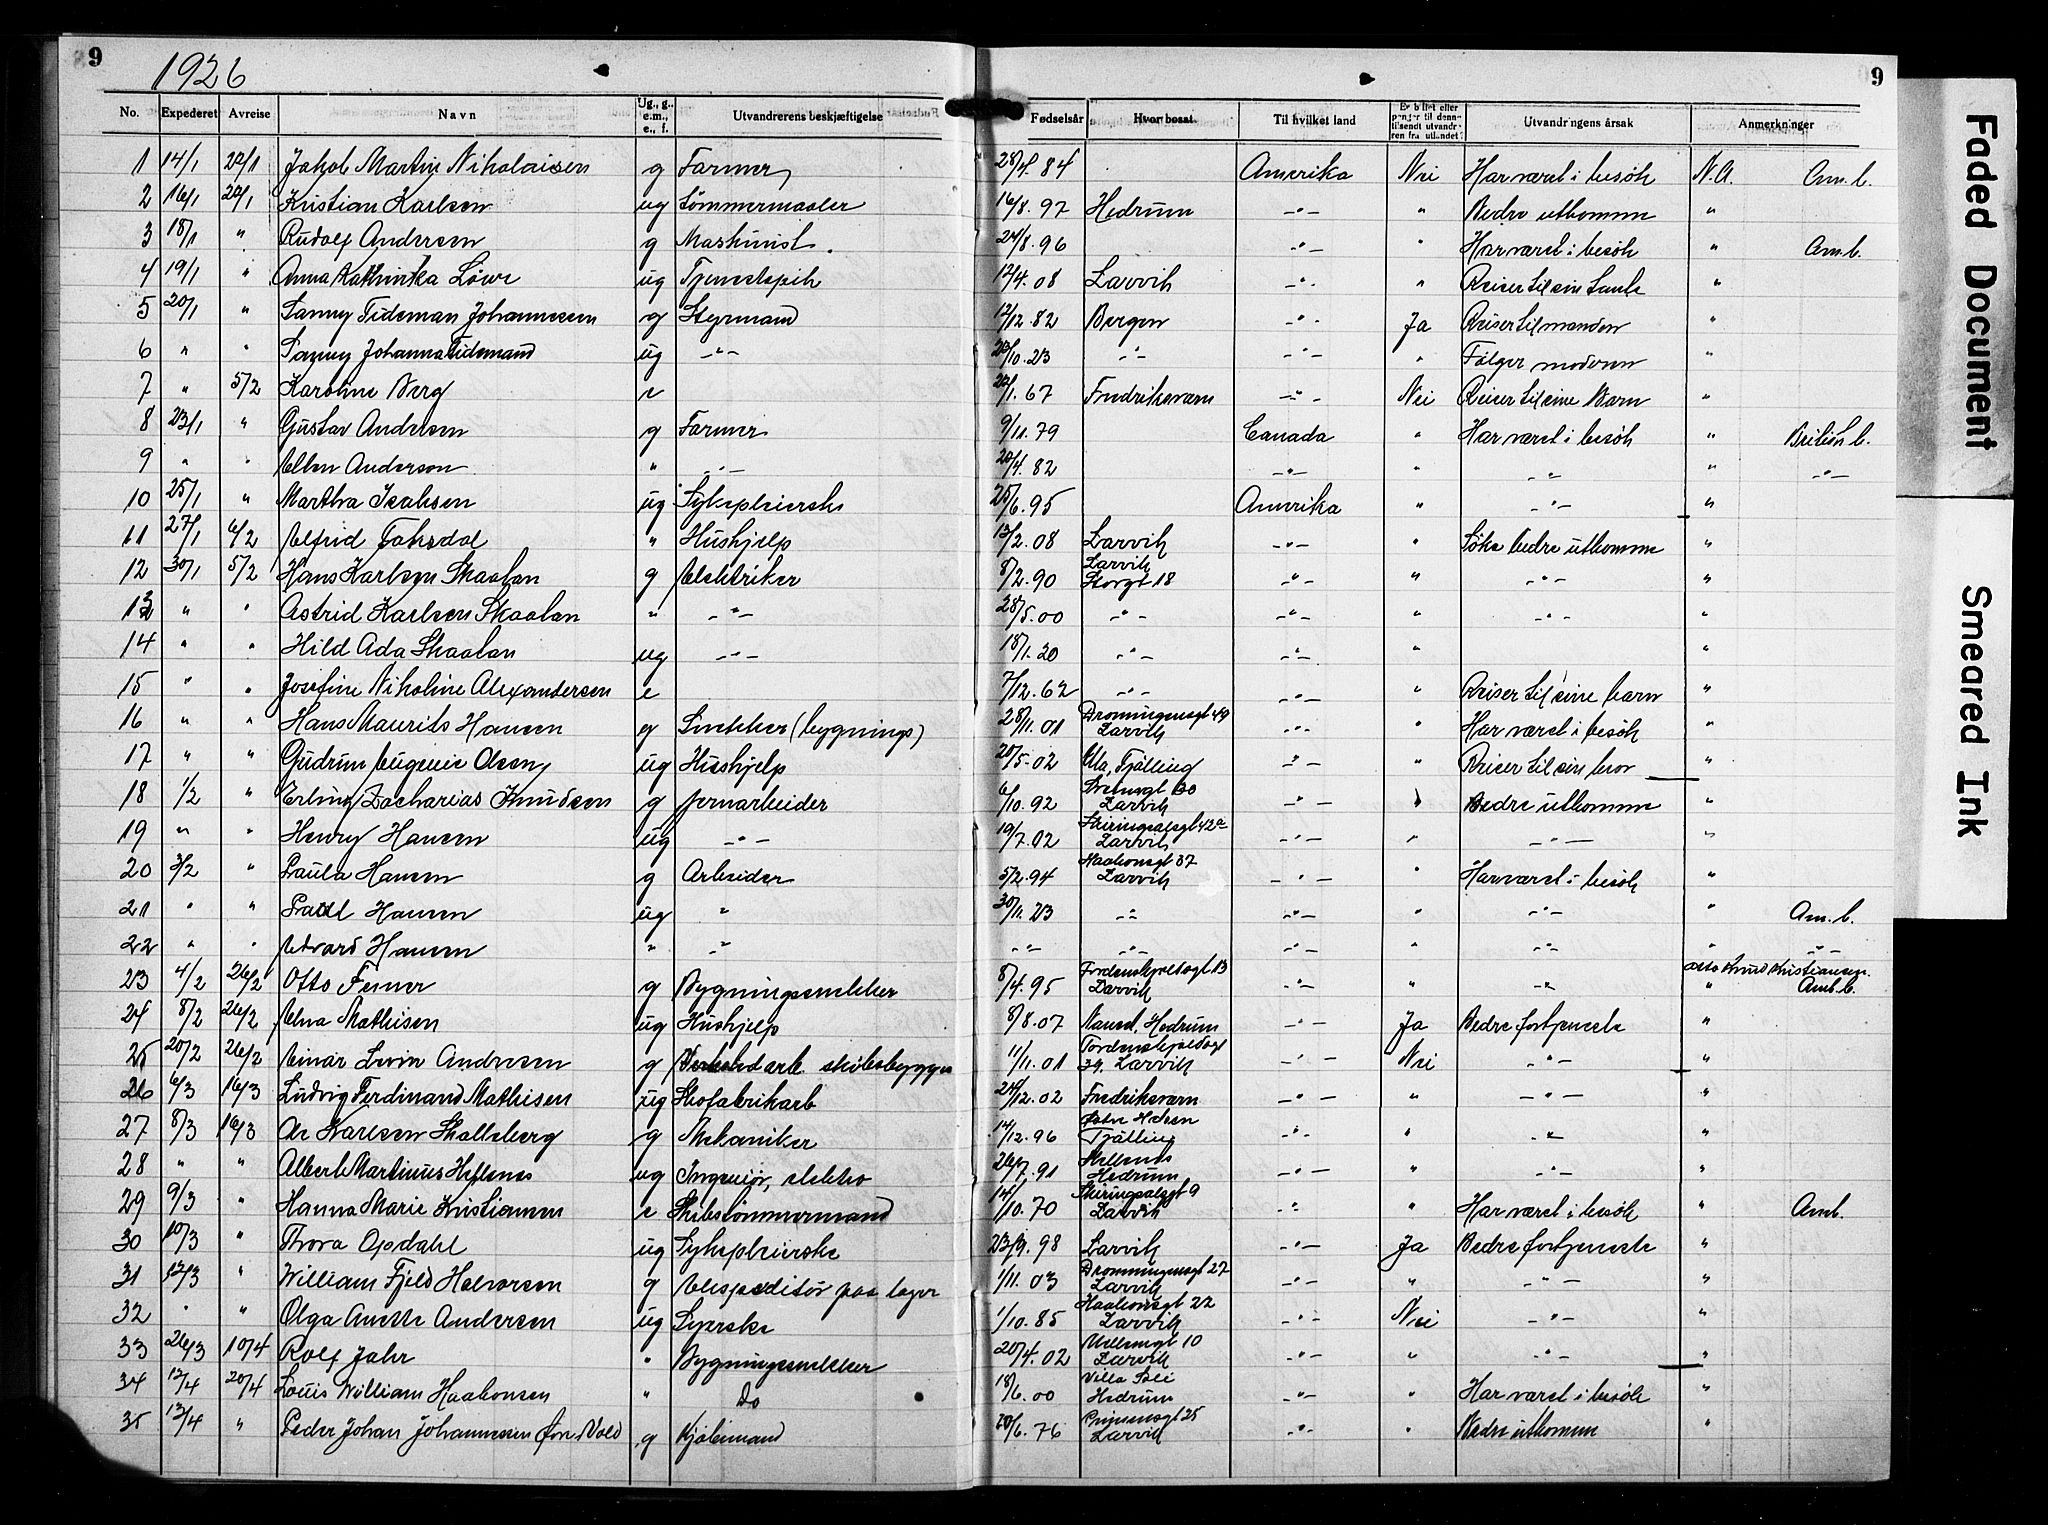 9
1926
9
No. Expederet Avreise Navn Ug., g., e.m., e., f. Utvandrerens beskjæftigelse Fødselsår Hvor bosat Til hvilket land Er billet eller penger til denne tilsendt utvandreren fra utlandet? Utvandringens årsak Anmerkninger
1 14/1 22/1 Jakob Martin Nikolaisen g Farmer 28/4. 84 Amerika Nei Har været i besök N.A. Am. b.
2 16/1 22/1 Kristian Karlsen ug Tömmermaaler 16/8. 97 Hedrum -"- " Bedre utkomme "
3 18/1 " Rudolf Andersen g Maskinist. 24/8. 96 -"- " Har været i besök " Am. b.
4 19/1 " Anna Kathinka Löwe ug Tjenestepik 12/4. 08 Larvik -"- " Reiser til sin tante "
5 20/1 " Fanny Tideman Johannesen g Styrmand 12/12. 82 Bergen -"- Ja Reiser til manden "
6 " " Fanny Johanna Tidemand ug -"- 23/10. 23 -"- -"- " Følger moderen "
7 " 5/2 Karoline Berg e 22/1. 67 Fredriksværn -"- Nei Reiser til sine Barn "
8 23/1 " Gustav Andersen g Farmer 9/11. 79 Canada " Har været i besök " British b.
9 " " Ellen Anderson " -"- 20/4. 82 -"- " -"- " -"-
10 25/1 " Martha Isaksen ug Sykepleierske 25/6. 95 Amerika " -"- "
11 27/1 6/2 Alfrid Foksdal " Hushjelp 13/2. 08 Larvik -"- " Söke bedre utkomme "
12 30/1 5/2 Hans Karlsen Skaalan g Elektriker 8/2. 90 Larvik Storgt 18 -"- " -"- "
13 " " Astrid Karlsen Skaalan " -"- 28/5. 00 -"- -"- " -"- "
14 " " Hild Ada Skaalan ug -"- 18/1. 20 -"- -"- " "
15 " " Josefine Nikoline Alexandersen e 7/12. 62 -"- -"- " Reiser til sine barn "
16 " " Hans Maurits Hansen g Snekker (bygnings) 28/11. 01 Dronningensgt 49 Larvik -"- " Har været i besök "
17 " " Gudrun Eugenie Olsen ug Hushjelp 20/5. 02 Ula, Tjölling -"- " Reiser til sin bror "
18 1/2 " Erling Zacharias Knudsen g Jernarbeider 6/10. 92 Larvik -"- " Bedre utkomme "
19 " " Henry Hansen ug -"- 19/7. 02 Skiringsalsgt 42a Larvik -"- " -"- "
20 3/2 " Paula Hansen g Arbeider 5/2. 94 Haakonsgt 37 Larvik -"- " Har været i besök "
21 " " Paul Hansen ug " 30/11. 23 -"- -"- " -"- " Am. b.
22 " " Edvard Hansen " -"- -"- -"- -"- " -"- " -"-
23 4/2 26/2 Otto Feiner g Bygningssnekker 8/4. 95 Tordenskjoldsgt 13 Larvik -"- " -"- " Kristiansen. Amb. b.
24 8/2 26/2 Elna Mathisen ug Hushjelp 8/8. 07 Nanset, Hedrum -"- Ja Bedre fortjeneste "
25 20/2 26/2 Einar Irvin Andresen g arb. skibsbygger 11/11. 01 Tordenskjoldsgt 39, Larvik -"- Nei -"- "
26 6/3 16/3 Ludvig Ferdinand Mathisen ug Skofabrikarb 24/12. 02 Fredriksværn -"- " -"- "
27 8/3 16/3 Ar Karlsen Skalleberg g Mekaniker 14/12. 96 Tjölling -"- " -"- "
28 " " Albert Martinus Hellenes ug Ingeniör, elektro 26/7. 91 Hedrum -"- " -"- "
29 9/3 " Hanna Marie Kristiansen e Skibstömmermand 14/10. 70 Skiringsalsgt 9 Larvik -"- " Har været i besök " Amb.
30 10/3 " Thora Opdahl ug Sykepleierske 23/9. 98 Larvik -"- Ja Bedre fortjeneste "
31 12/3 " William Fjeld Halvorsen g Ekspeditör paa lager 1/11. 03 Dronningensgt 27 Larvik -"- " -"- "
32 " " Olga Anette Andersen ug Syerske 1/10. 85 Haakonsgt 22 Larvik -"- Nei -"- "
33 26/3 10/4 Rolf Jahr " Bygningssnekker 20/4. 02 10 Larvik -"- " -"- "
34 12/4 20/4 Louis William Haakonsen " Do 18/6. 00 Villa Hedrum -"- " Har været i besök "
35 13/4 " Peder Johan Johannessen Övre Vold g Kjöbmand 20/6. 76 Prinsensgt 25 Larvik -"- " Bedre utkomme "
Faded Document
Smeared Ink